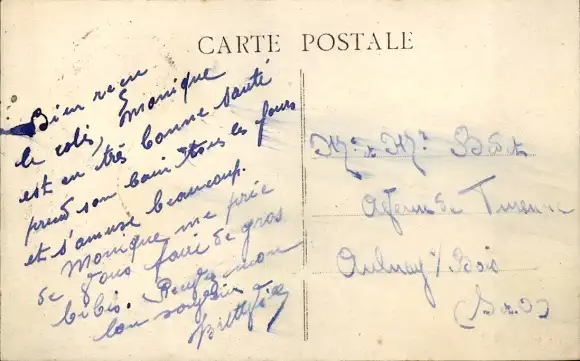 CARTE POSTALE
Bien reçu
le colis, Monique
est en très bonne santé
prend son bain tous les jours
et s'amuse beaucoup.
Monique me prie
de vous faire de gros
bibis. Rendez mon
bon souvenir
Mr & Me
A. de Turenne
Aulnay s/ Bois
(S & O)